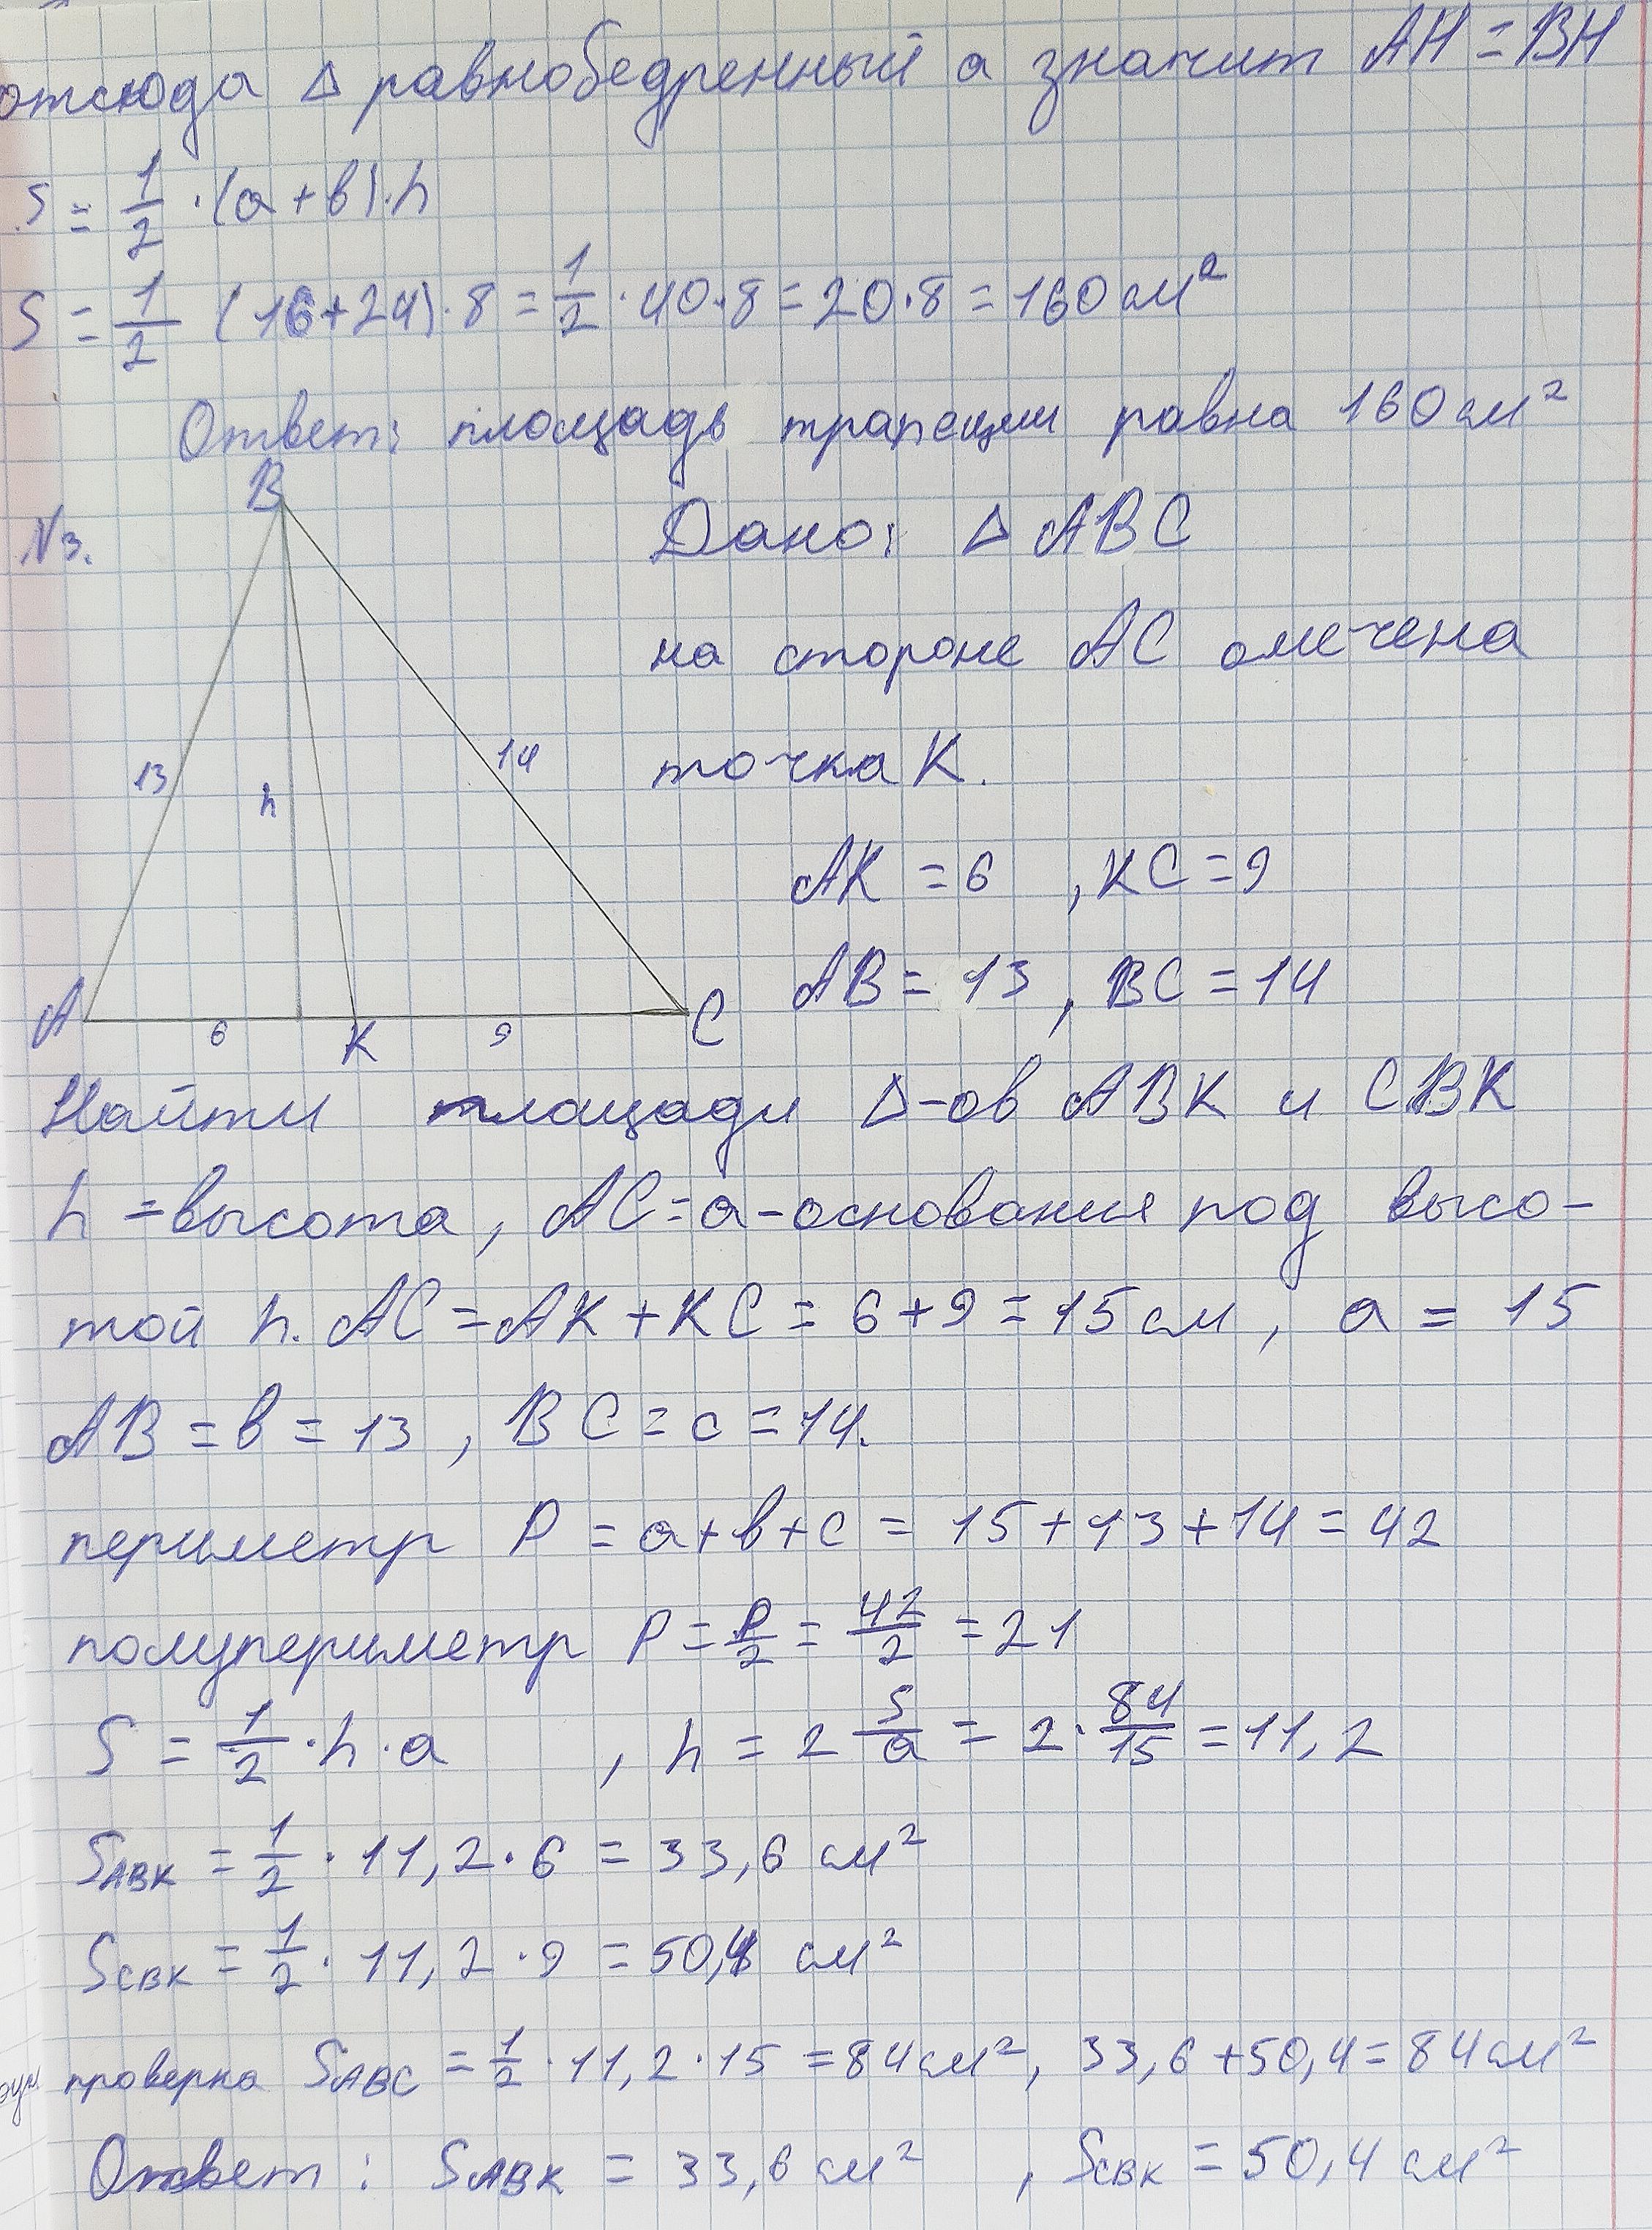 отсюда Δ равнобедренный а значит AH = BH
S = 1/2 · (a + b) · h
S = 1/2 (16 + 24) · 8 = 1/2 · 40 · 8 = 20 · 8 = 160 см²
Ответ: площадь трапеции равна 160 см²
B
N3.
Дано: Δ ABC
на стороне AC омечена
13
14
h
точка K.
AK = 6 , KC = 9
AB = 13 , BC = 14
A
6
K
9
C
Найти площади Δ-ов ABK и CBK
h = высота, AC = a - основания под высо-
той h. AC = AK + KC = 6 + 9 = 15 см , a = 15
AB = b = 13 , BC = c = 14.
периметр P = a + b + c = 15 + 13 + 14 = 42
полупериметр P = P/2 = 42/2 = 21
S = 1/2 · h · a , h = 2 S/a = 2 · 84/15 = 11,2
SABK = 1/2 · 11,2 · 6 = 33,6 см²
SCBK = 1/2 · 11,2 · 9 = 50,4 см²
проверка SABC = 1/2 · 11,2 · 15 = 84 см², 33,6 + 50,4 = 84 см²
Ответ: SABK = 33,6 см² , SCBK = 50,4 см²